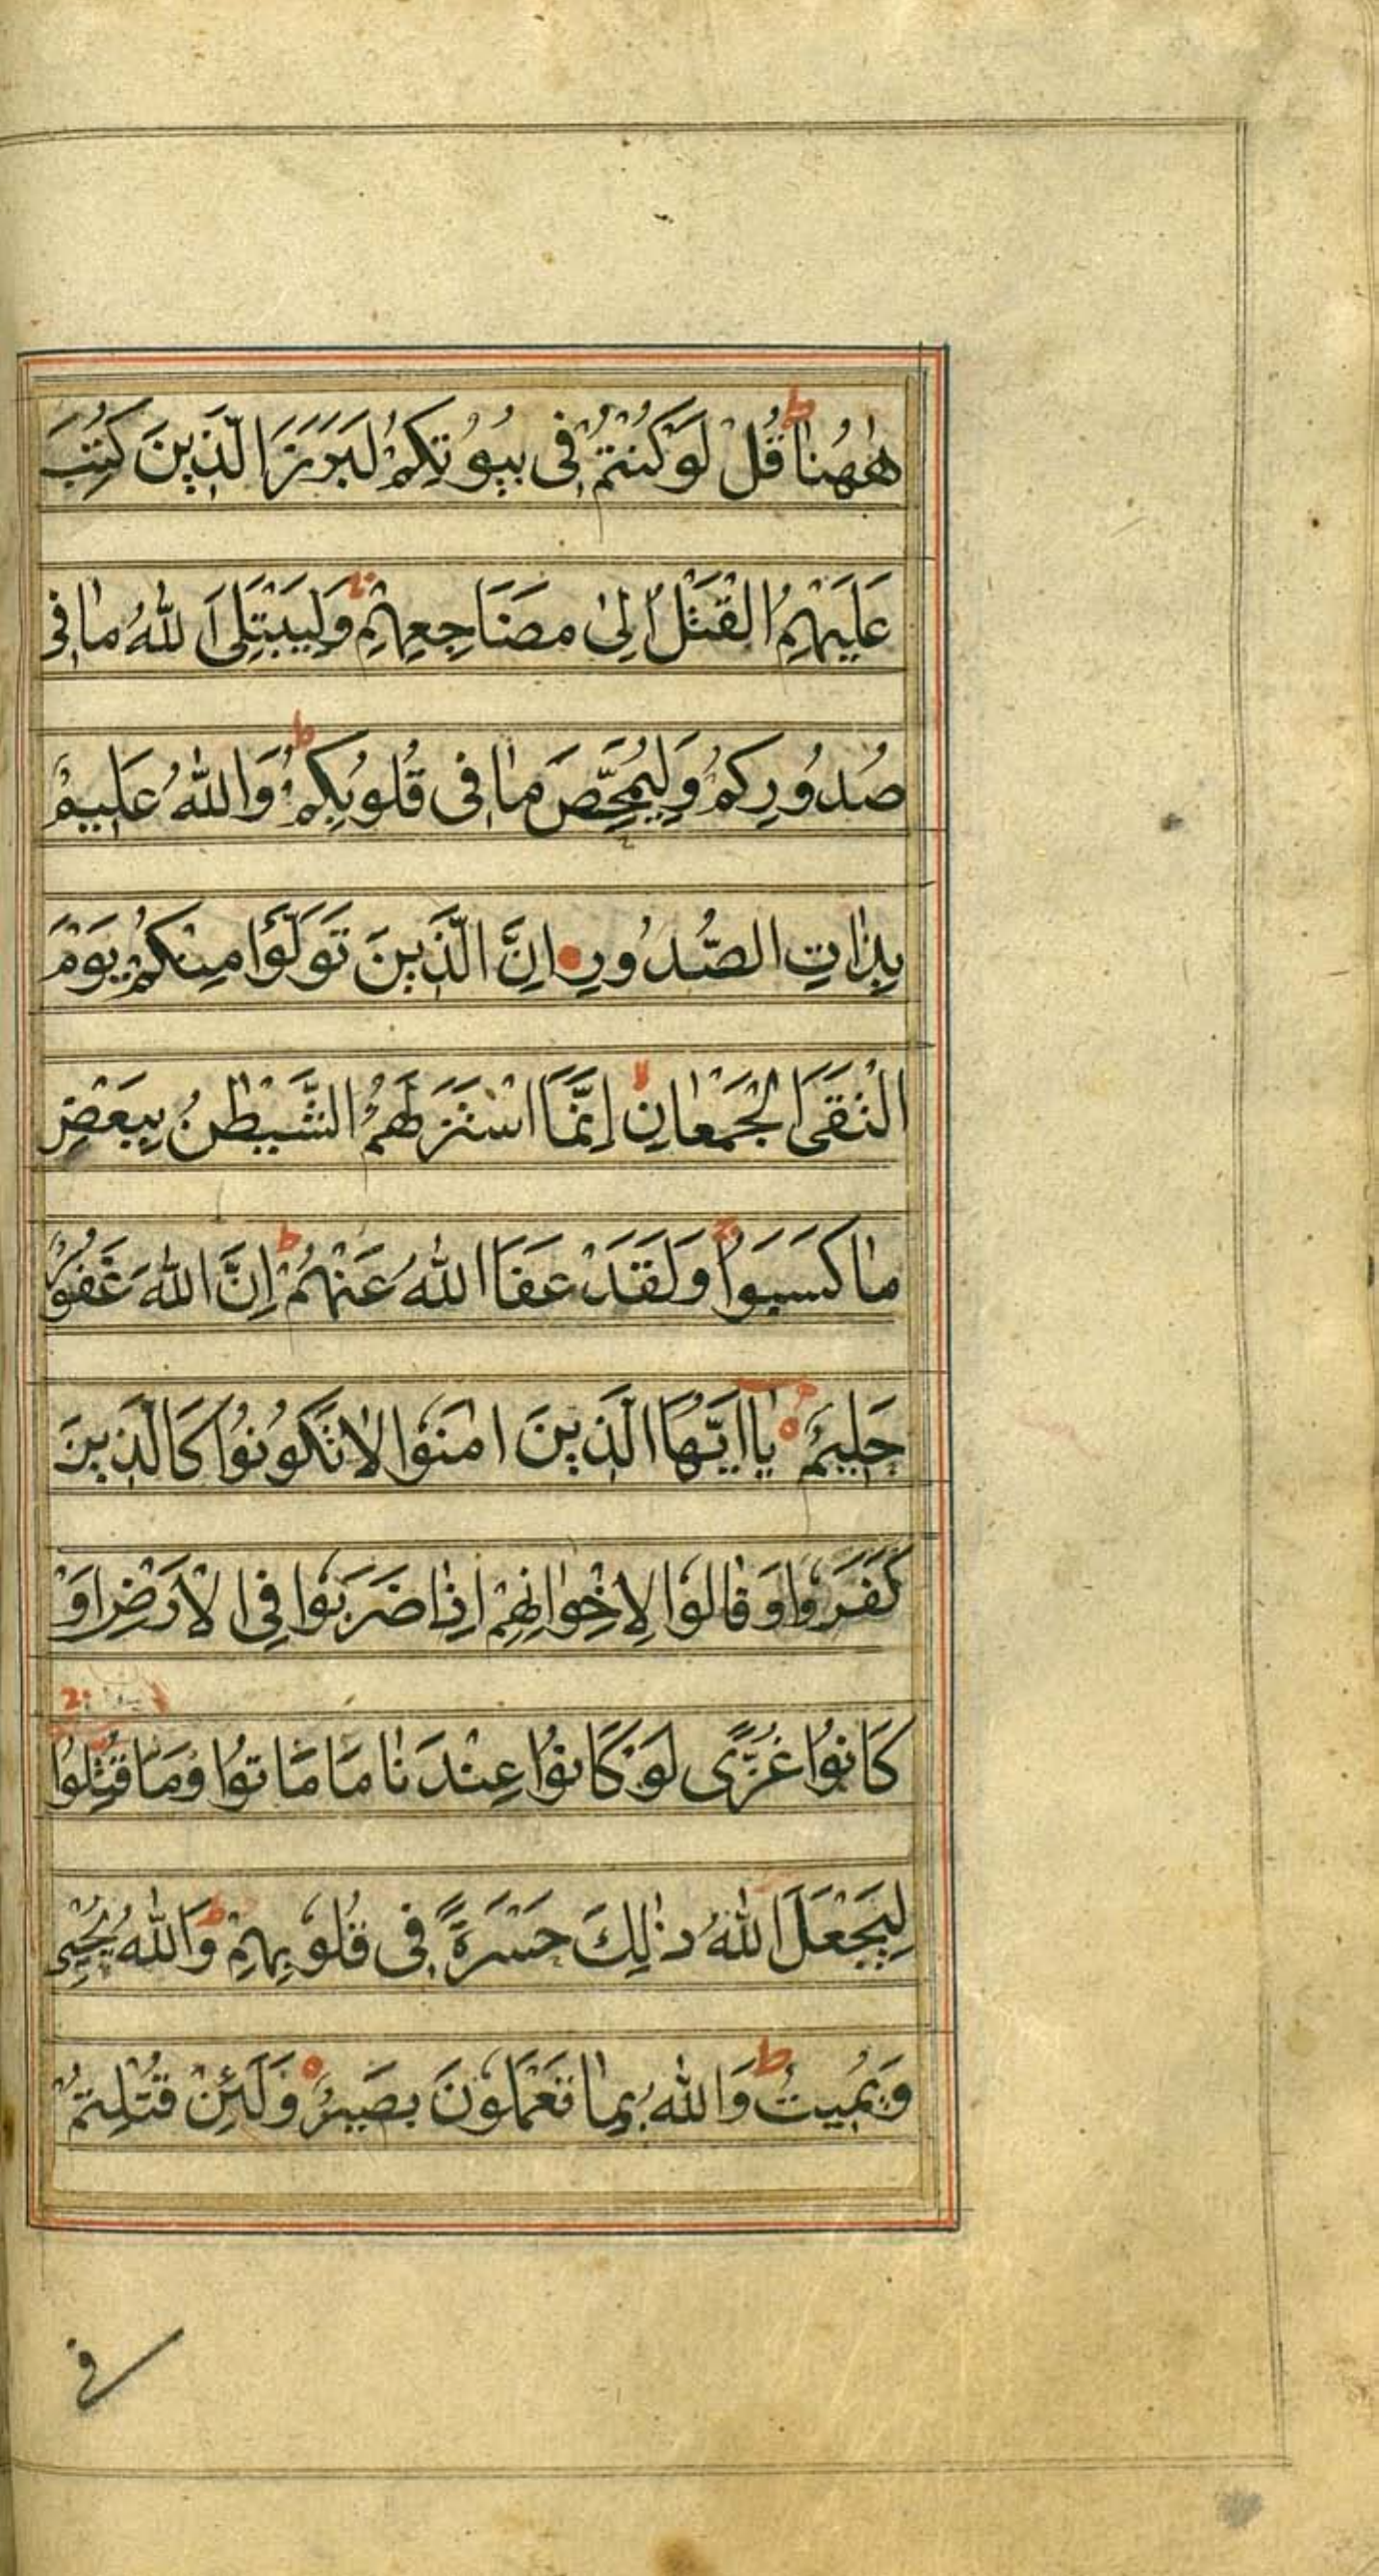 هٰهُنَا ط قُلْ لَوْ كُنْتُمْ فِی بُیُوْتِكُمْ لَبَرَزَ الَّذِینَ كُتِبَ
عَلَیْهِمُ الْقَتْلُ اِلٰی مَضَاجِعِهِمْ ج وَلِیَبْتَلِیَ اللّٰهُ مَا فِی
صُدُوْرِكُمْ وَلِیُمَحِّصَ مَا فِی قُلُوبِكُمْ ط وَاللّٰهُ عَلِیمٌ
بِذَاتِ الصُّدُوْرِ اِنَّ الَّذِینَ تَوَلَّوْا مِنْكُمْ یَوْمَ
الْتَقَی الْجَمْعَانِ لا اِنَّمَا اسْتَزَلَّهُمُ الشَّیْطٰنُ بِبَعْضِ
مَا كَسَبُوا ج وَلَقَدْ عَفَا اللّٰهُ عَنْهُمْ ط اِنَّ اللّٰهَ غَفُوْرٌ
حَلِیمٌ ه یَا اَیُّهَا الَّذِینَ اٰمَنُوا لَا تَكُوْنُوْا كَالَّذِینَ
كَفَرُوا وَقَالُوا لِاِخْوَانِهِمْ اِذَا ضَرَبُوا فِی الْاَرْضِ اَوْ
كَانُوْا غُزًّی لَوْ كَانُوْا عِنْدَنَا مَا مَاتُوْا وَمَا قُتِلُوْا ج
لِیَجْعَلَ اللّٰهُ ذٰلِكَ حَسْرَةً فِی قُلُوْبِهِمْ ط وَاللّٰهُ یُحْیِی
وَیُمِیتُ ط وَاللّٰهُ بِمَا تَعْمَلُوْنَ بَصِیْرٌ ه وَلَئِنْ قُتِلْتُمْ
فی